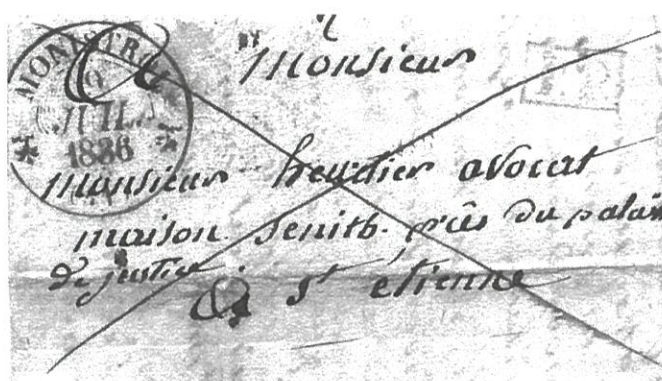 MONISTROL
9
JUIL.
1836
Monsieur
Monsieur heudier avocat
maison. Senith. près du palais
de justice.
A St etienne